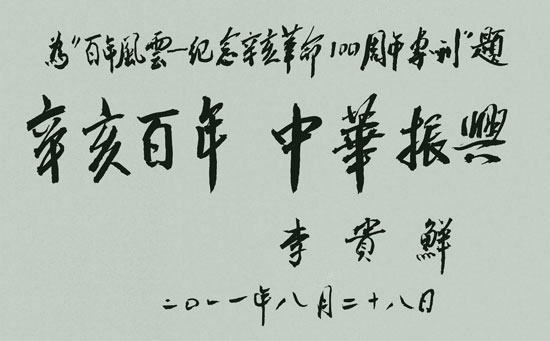 為"百年風雲—纪念辛亥革命100周年専刊"題
辛亥百年 中華振興
李貴鮮
二〇一一年八月二十八日